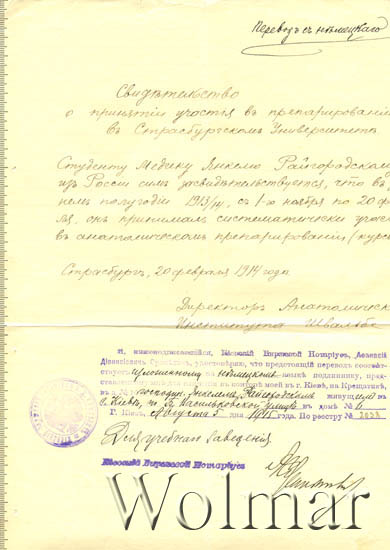 Переводъ съ нѣмецкаго
Свидѣтельство
о принятіи участія въ препарированіи
въ Страсбургскомъ Университетѣ
Студенту Медику Янкелю Райгородскому
изъ Россіи симъ засвидѣтельствуется, что въ
немъ полугодіи 1913/14, съ 1-го ноября по 20 фе
ля, онъ принималъ систематически учас
въ анатомическомъ препарированіи (курс
Страсбургъ, 20 февраля 1914 года
Директоръ Анатомическ
Института Швальбе
Я, нижеподписавшійся, Кіевскій Биржевой Нотаріусъ, Алексѣй
удостовѣряю, что предстоящій переводъ соотвѣт
ствуетъ приложенному нѣмецкомъ языкѣ подлиннику, предс
въ конторѣ моей въ г. Кіевѣ, на Крещатикѣ,
въ д. № Райгородскимъ живущимъ
г. Кіевѣ, по Б. Васильковской улицѣ въ домѣ № 6
Г. Кіевъ, Августа 5 дня 1915 года. По реестру №
Для учебнаго заведенія
Кіевскій Биржевой Нотаріусъ
Wolmar